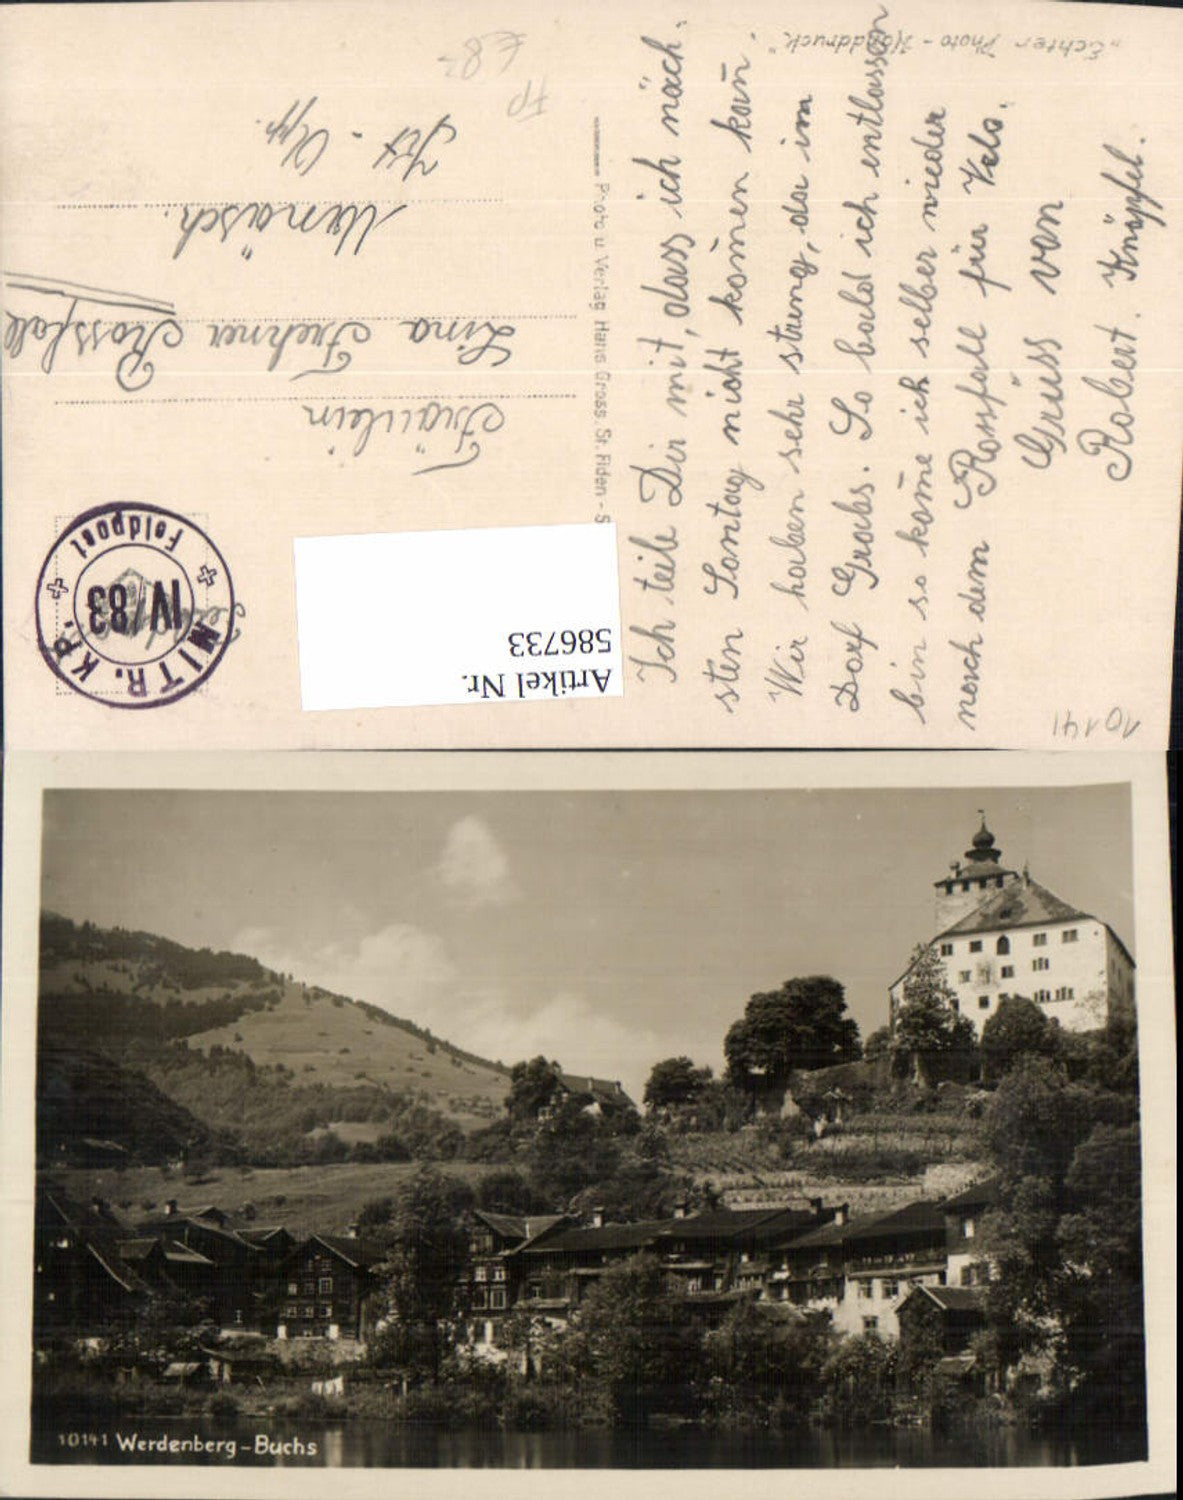 "Echter Photo-Handdruck"
10141
Ich teile Dir mit, dass ich näch-
sten Sontag nicht komen kan.
Wir haben sehr streng, da im
Dorf Grabs. So bald ich entlassen
bin so kome ich selber wieder
nach dem Rossfall für Velo.
Gruss von
Robert. Knöpfel.
Photo u Verlag Hans Gross, St. Fiden - S
Fräulein
Lina Frehner Rossfall
Urnäsch.
Kt - App.
FP
£ 83
MITR. KP.
IV/83
Feldpost
Artikel Nr.
586733
10141 Werdenberg-Buchs